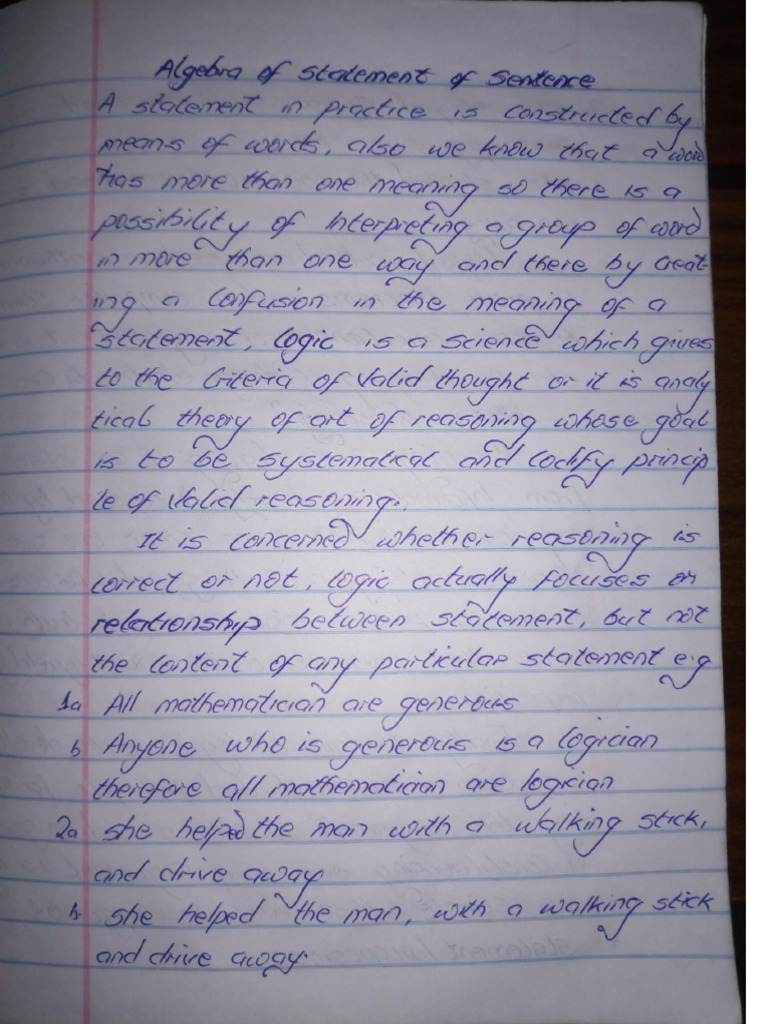 Algebra of statement of Sentence
A statement in practice is constructed by
means of words, also we know that a word
has more than one meaning so there is a
possibility of Interpreting a group of word
in more than one way and there by creat-
ing a confusion in the meaning of a
statement, logic is a science which gives
to the criteria of valid thought or it is analy
tical theory of art of reasoning whose goal
is to be systematical and codify princip
le of valid reasoning.
It is concerned whether reasoning is
correct or not, logic actually focuses on
relationship between statement, but not
the content of any particular statement e.g
1a All mathematician are generous
b Anyone who is generous is a logician
therefore all mathematician are logician
2a she helped the man with a walking stick,
and drive away
b. she helped the man, with a walking stick
and drive away.